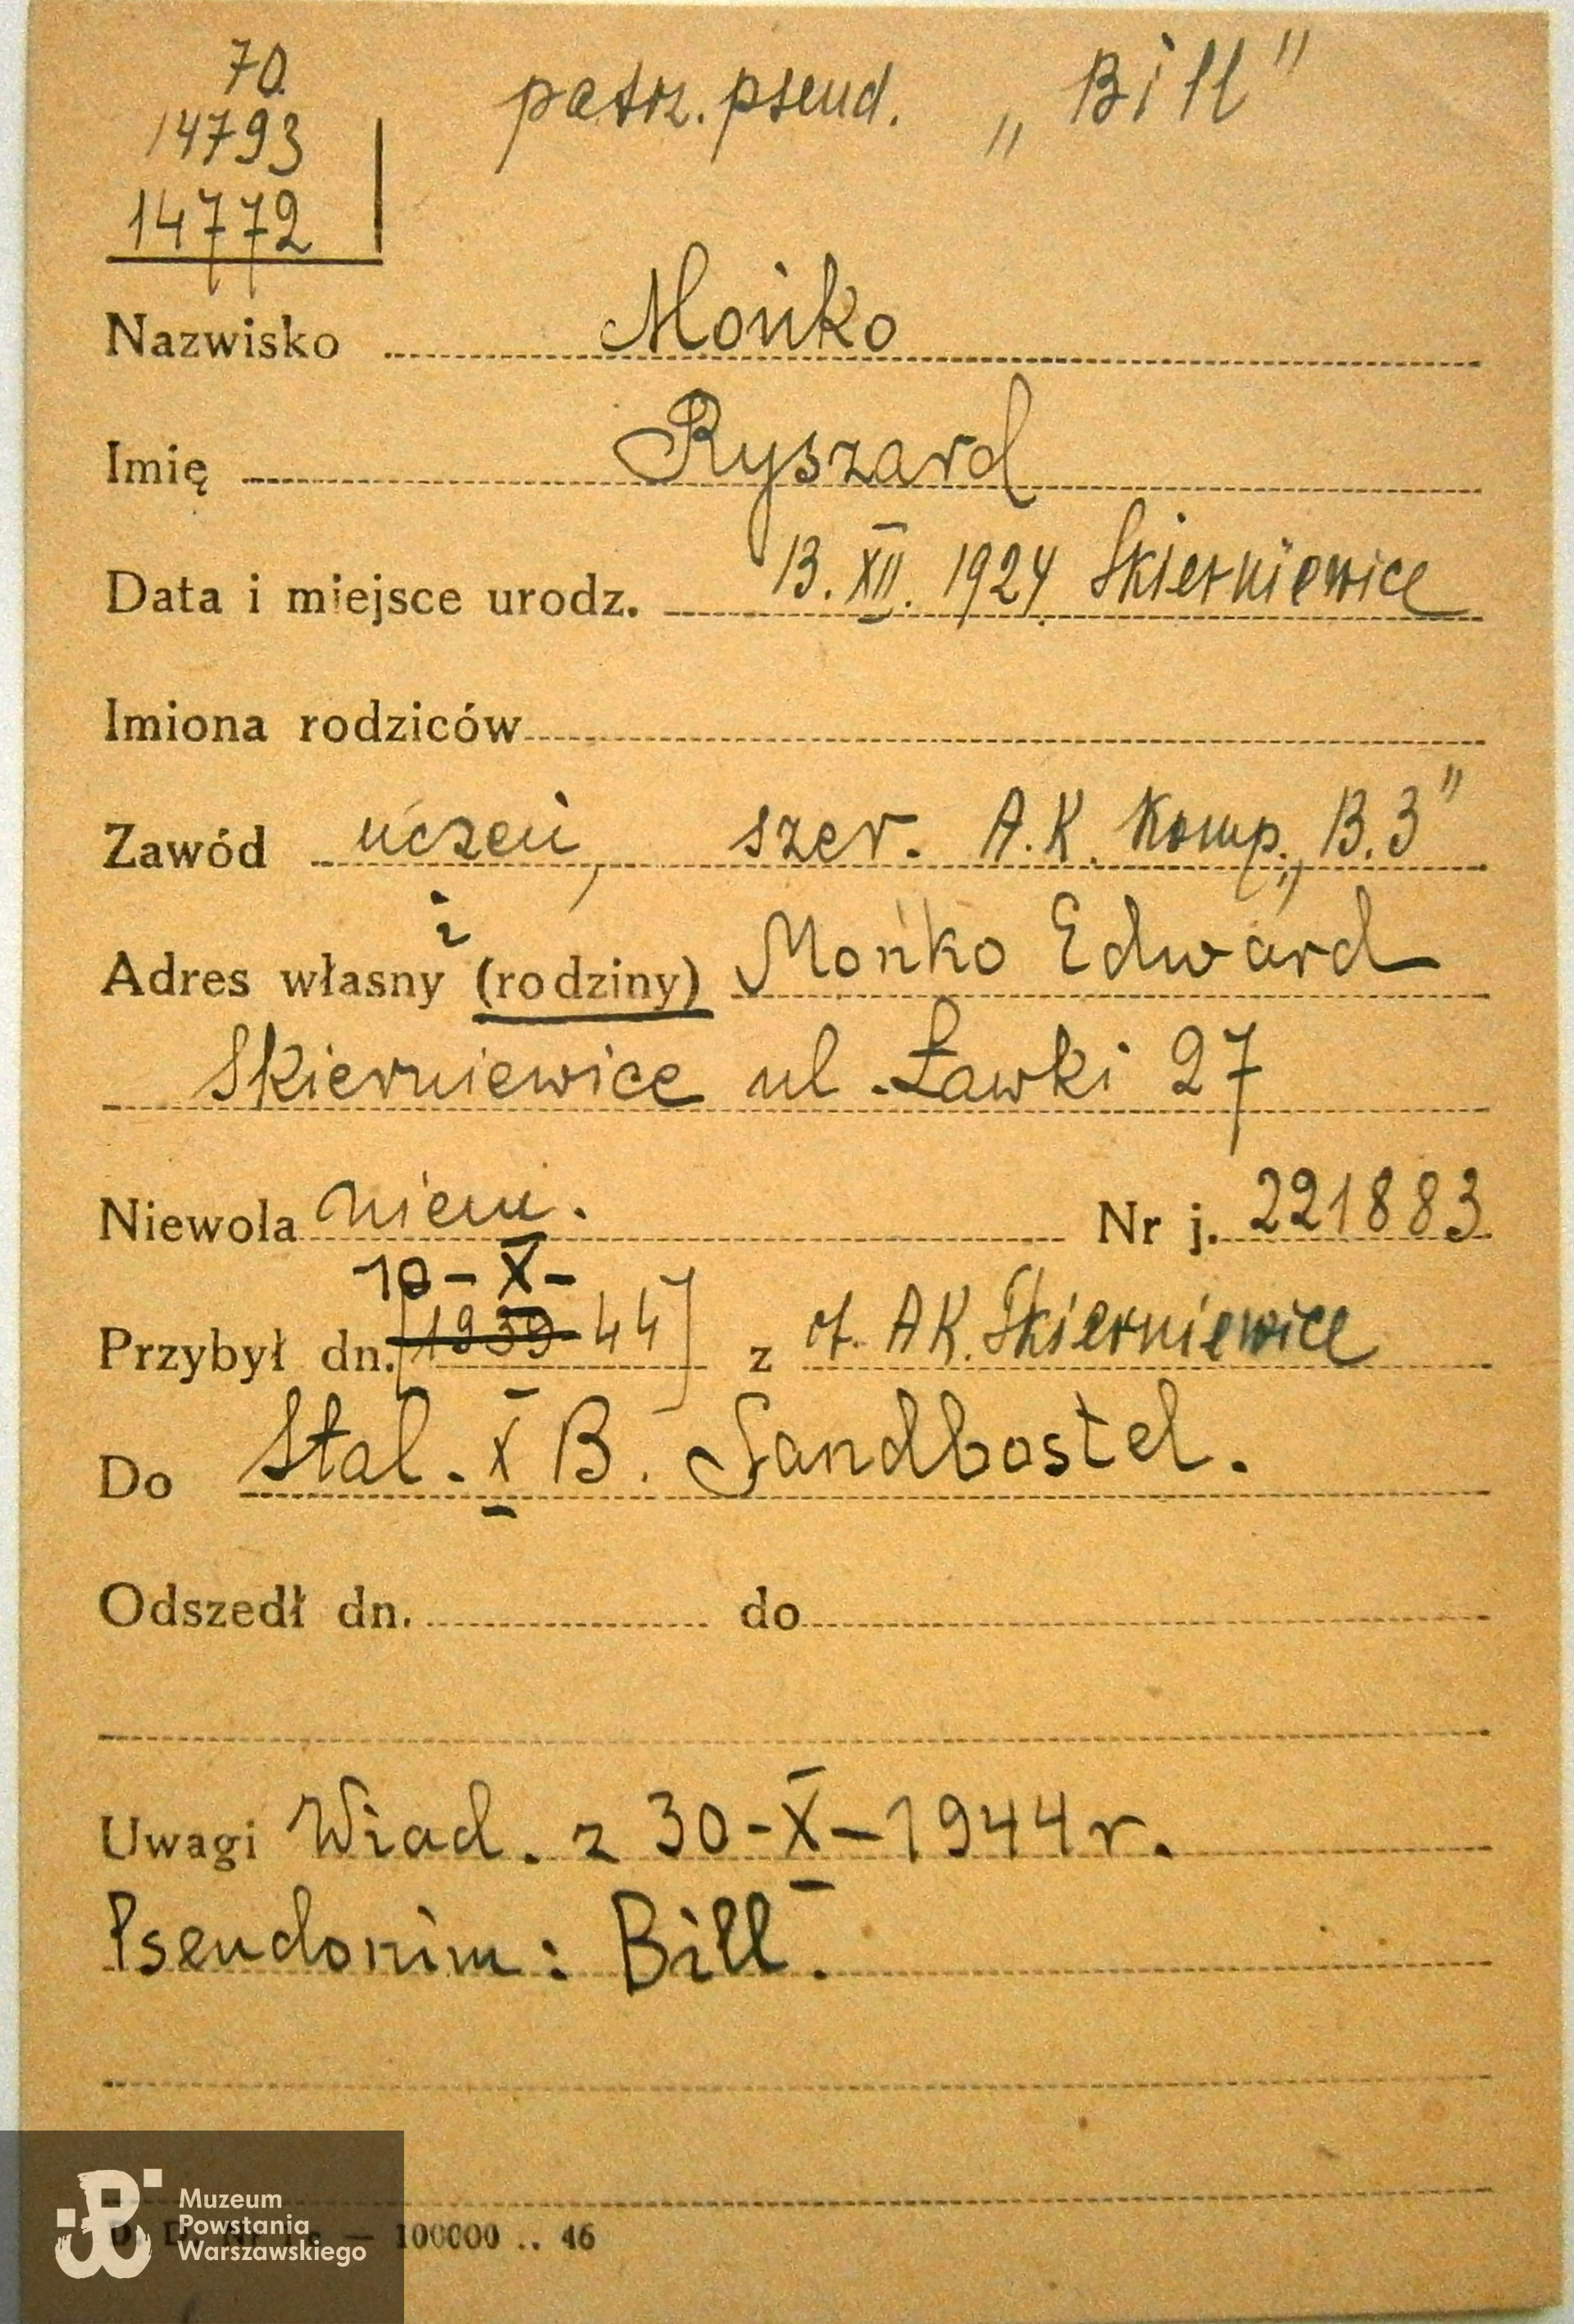 70.
14793
14772
patrz. pseud. „Bill"
Nazwisko Mońko
Imię Ryszard
Data i miejsce urodz. 13. XII. 1924 Skierniewice
Imiona rodziców
Zawód uczeń, szer. A.K. Komp. „B.3"
Adres własny i (rodziny) Mońko Edward
Skierniewice ul. Ławki 27
Niewola niem. Nr j. 221883
10-X-
Przybył dn. [1939 44] z AK. Skierniewice
Do Stal. X B. Sandbostel.
Odszedł dn. do
Uwagi Wiad. z 30-X-1944 r.
Pseudonim: Bill.
Muzeum
Powstania
Warszawskiego
100000 .. 46